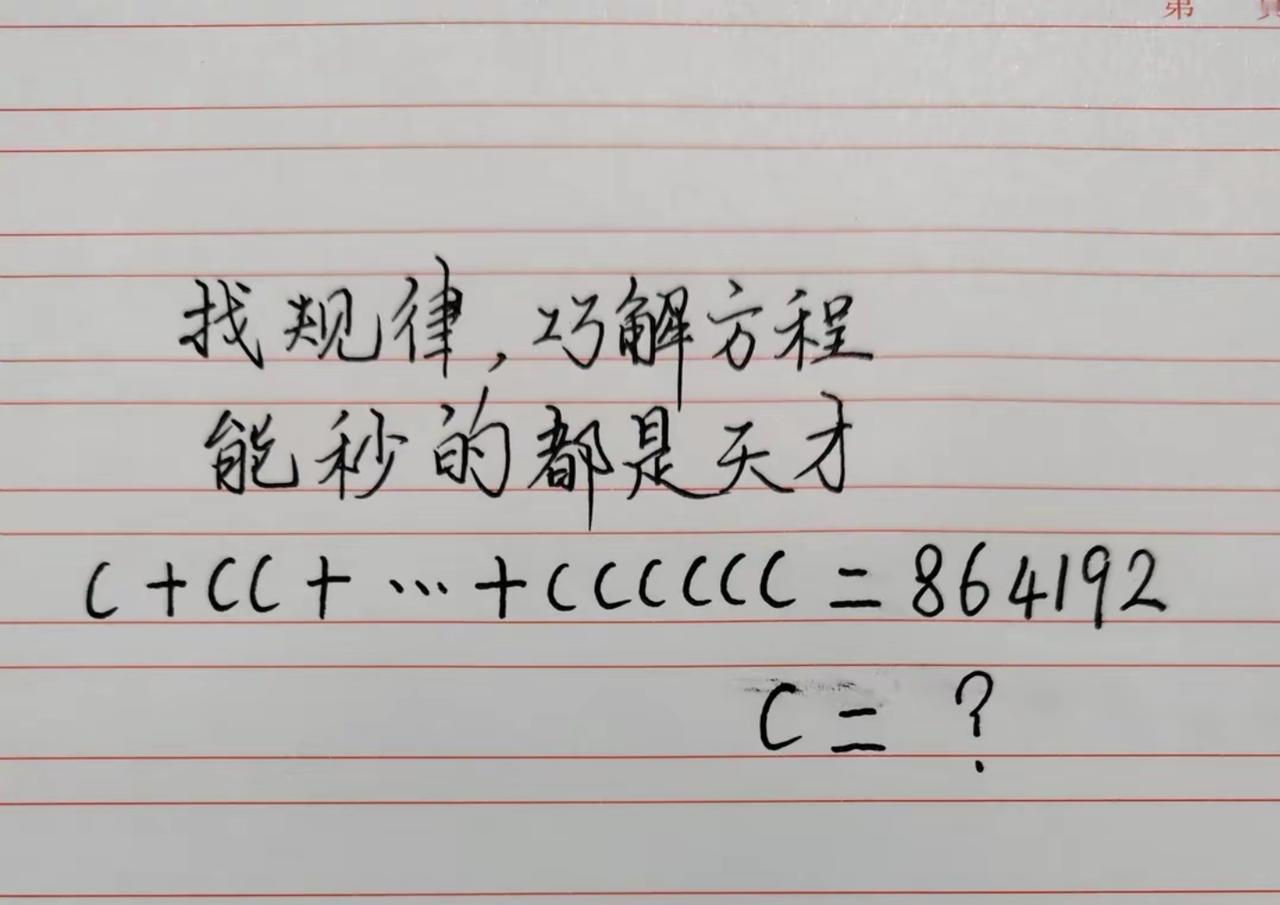 第 頁
找规律,巧解方程
能秒的都是天才
C+CC+…+CCCCCC=864192
C=?